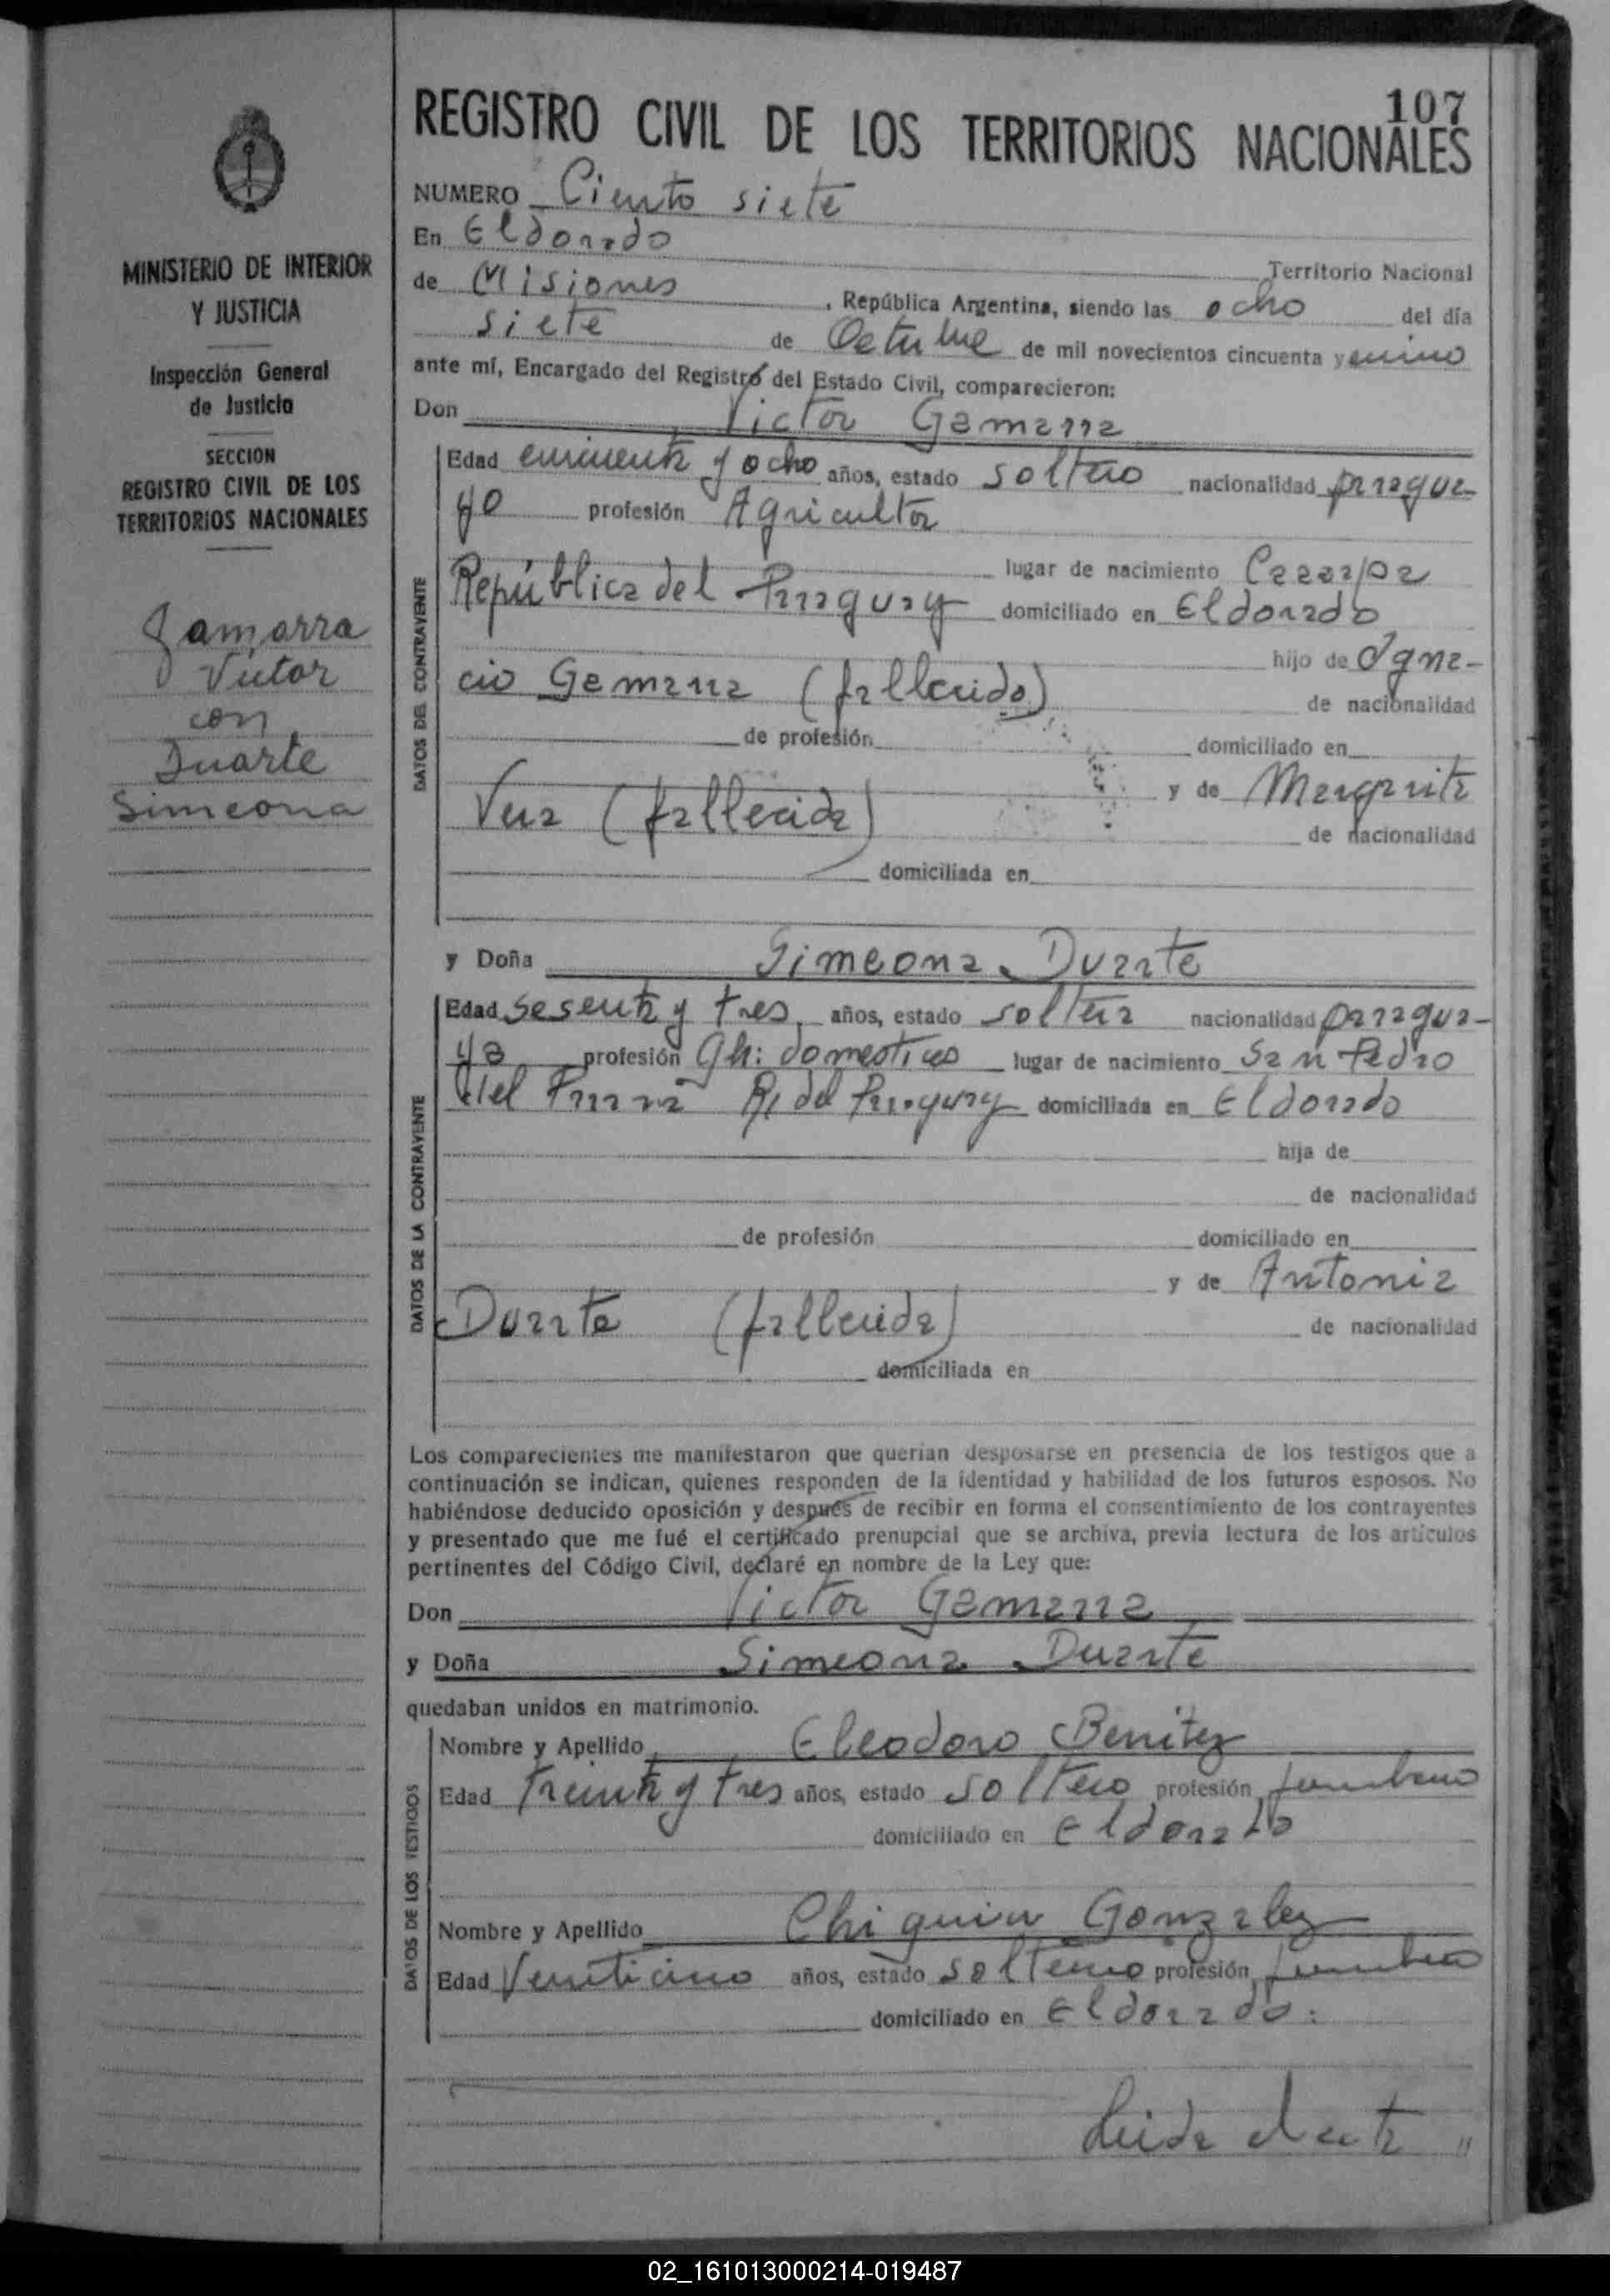 107
REGISTRO CIVIL DE LOS TERRITORIOS NACIONALES
NUMERO Ciento siete
En Eldorado
Territorio Nacional
de Misiones, República Argentina, siendo las ocho del día
siete de Octubre de mil novecientos cincuenta y
ante mí, Encargado del Registro del Estado Civil, comparecieron:
Don Victor Gamarra
Edad cincuenta y ocho años, estado soltero nacionalidad paragua-
yo profesión Agricultor
lugar de nacimiento
República del Paraguay domiciliado en Eldorado
hijo de Igna-
cio Gamarra (fallecido) de nacionalidad
de profesión domiciliado en
y de Margarita
Vera (fallecida) de nacionalidad
domiciliada en
y Doña Simeona Duarte
Edad Sesenta y tres años, estado soltera nacionalidad paragua-
ya profesión domesticos lugar de nacimiento San Pedro
del Paraná R. del Paraguay domiciliada en Eldorado
hija de
de nacionalidad
de profesión domiciliado en
y de Antonia
Duarte (fallecida) de nacionalidad
domiciliada en
Los comparecientes me manifestaron que querían desposarse en presencia de los testigos que a
continuación se indican, quienes responden de la identidad y habilidad de los futuros esposos. No
habiéndose deducido oposición y después de recibir en forma el consentimiento de los contrayentes
y presentado que me fué el certificado prenupcial que se archiva, previa lectura de los artículos
pertinentes del Código Civil, declaré en nombre de la Ley que:
Don Victor Gamarra
y Doña Simeona Duarte
quedaban unidos en matrimonio.
Nombre y Apellido Eleodoro Benitez
Edad Treinta y tres años, estado soltero profesión
domiciliado en Eldorado
Nombre y Apellido Gonzalez
Edad Venticinco años, estado soltero profesión
domiciliado en Eldorado.
Leida el acta "
MINISTERIO DE INTERIOR
Y JUSTICIA
Inspección General
de Justicia
SECCION
REGISTRO CIVIL DE LOS
TERRITORIOS NACIONALES
Gamarra
Victor
con
Duarte
Simeona
DATOS DEL CONTRAYENTE
DATOS DE LA CONTRAYENTE
DATOS DE LOS TESTIGOS
02_161013000214-019487